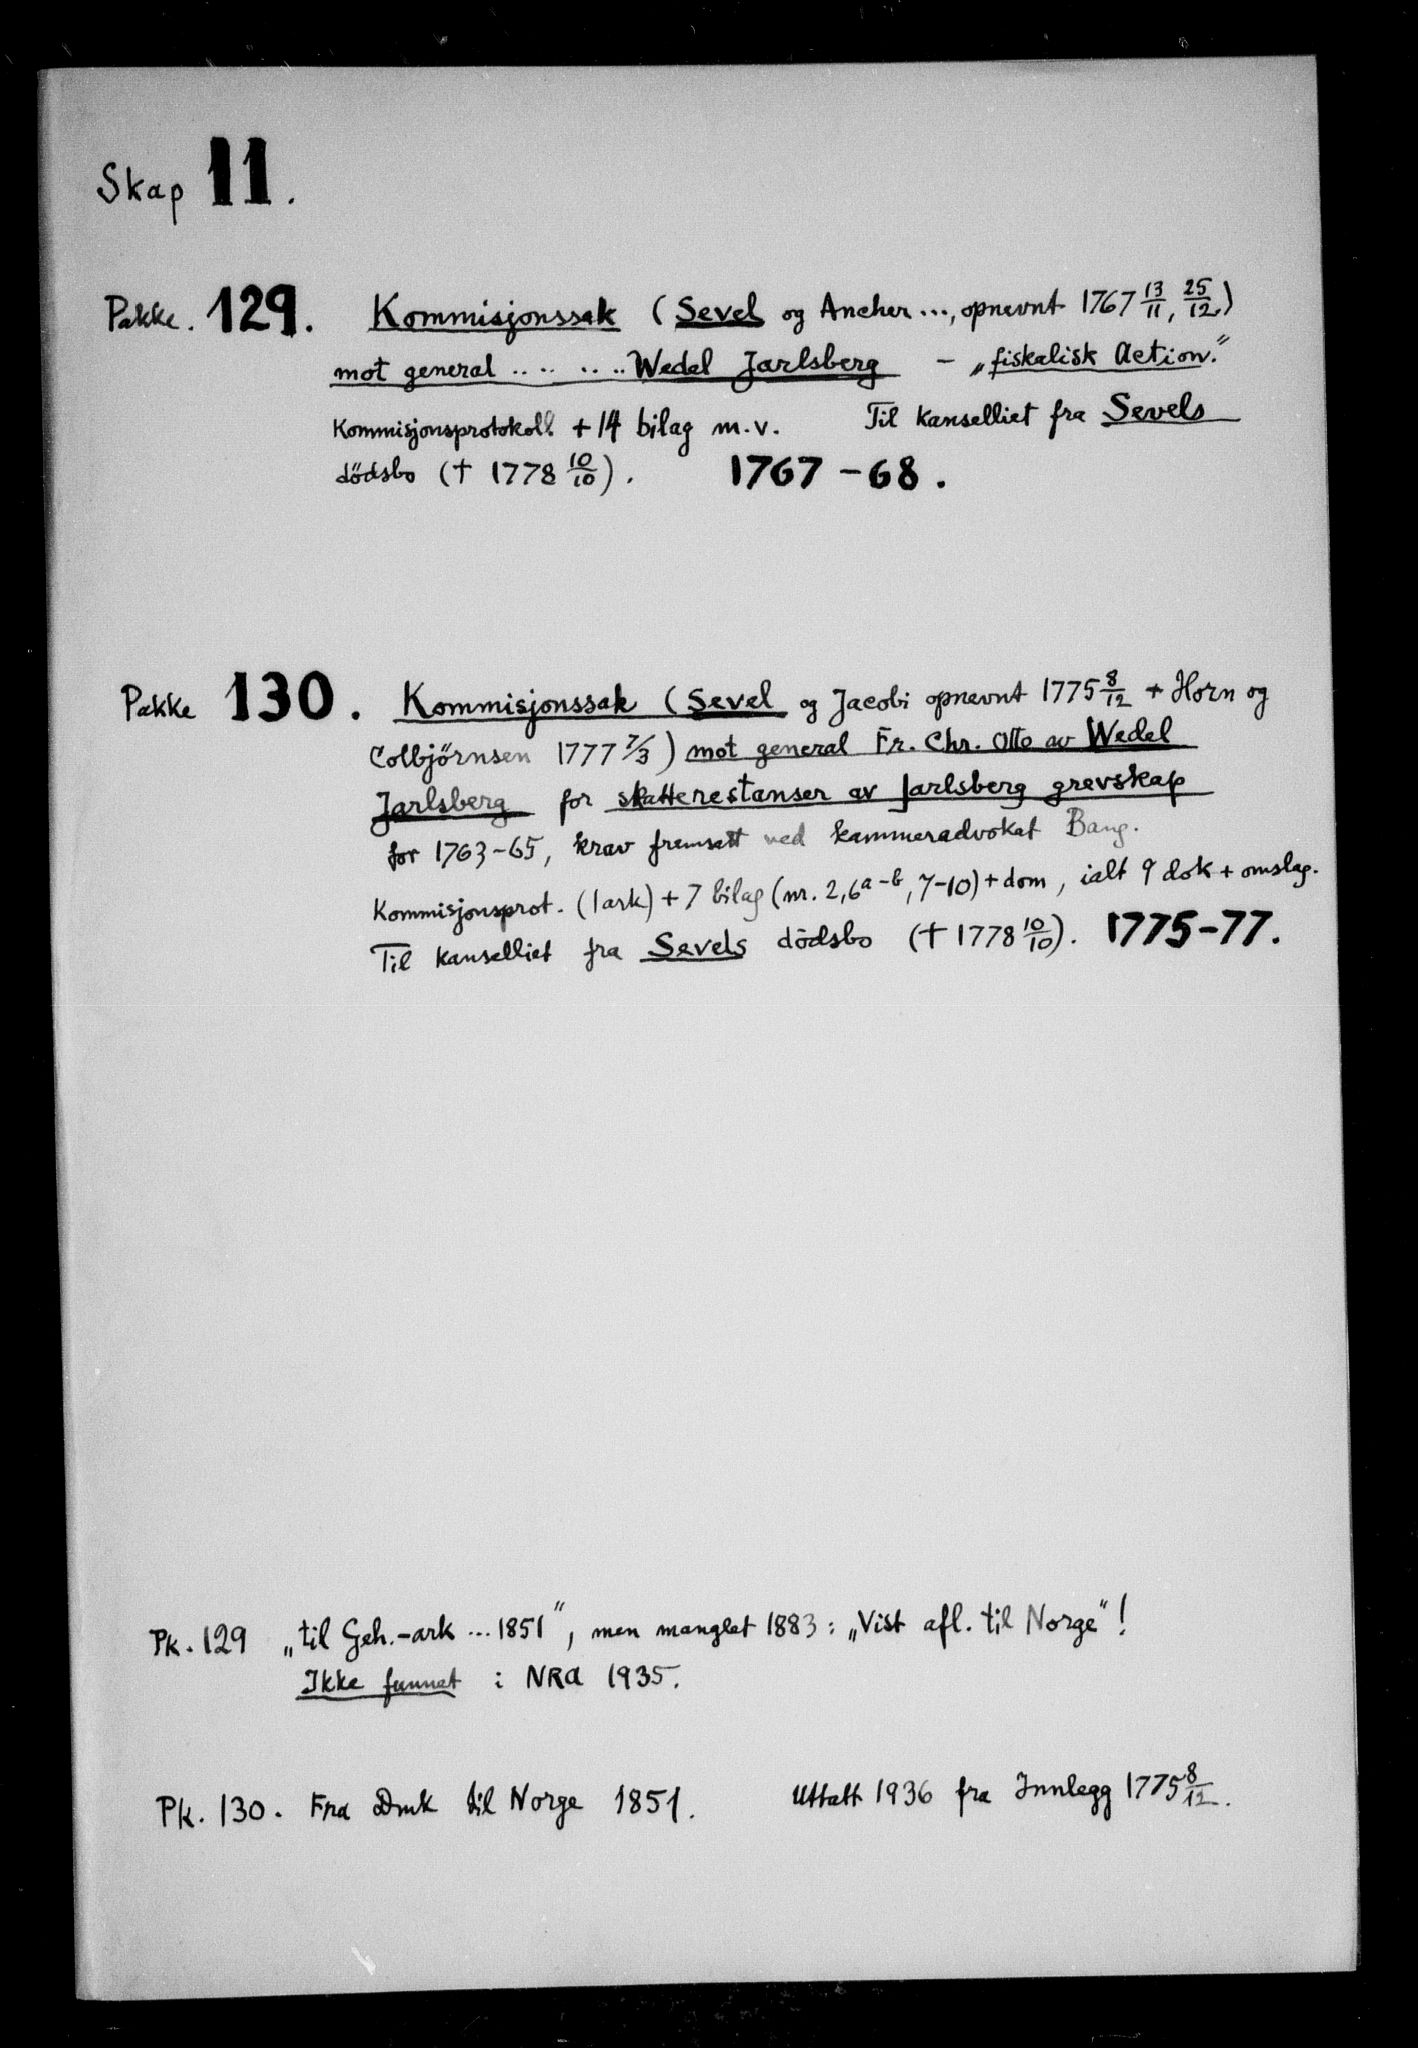 Skap 11.
Pakke. 129. Kommisjonssak (Sevel og Ancher ..., opnevnt 1767 13/11, 25/12)
mot general .. .. .. .. Wedel Jarlsberg – „fiskalisk Action.“
Kommisjonsprotokoll + 14 bilag m.v. Til kanselliet fra Sevels
dödsbo († 1778 10/10). 1767–68.
Pakke 130. Kommisjonssak (Sevel og Jacobi opnevnt 1775 8/12 + Horn og
Colbjörnsen 1777 7/3) mot general Fr. Chr. Otto av Wedel
Jarlsberg for skatterestanser av Jarlsberg grevskap
for 1763–65, krav fremsatt ved kammeradvokat Bang.
Kommisjonsprot. (1 ark) + 7 bilag (nr. 2, 6a–b, 7–10) + dom, ialt 9 dok + omslag.
Til kanselliet fra Sevels dödsbo († 1778 10/10). 1775–77.
Pk. 129 „til Geh.-ark ... 1851“, men manglet 1883: „Vist afl. til Norge“!
Ikke funnet i NRA 1935.
Pk. 130. Fra Dmk til Norge 1851. Uttatt 1936 fra Innlegg 1775 8/12.